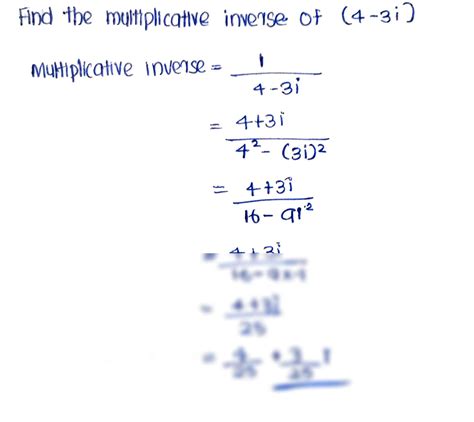 Find the multiplicative inverse of (4-3i)
Multiplicative inverse = 1 / 4-3i
= 4+3i / 4² - (3i)²
= 4+3i / 16 - 9i²
= 4+3i
= 4+3i / 25
= 4/25 + 3/25 i